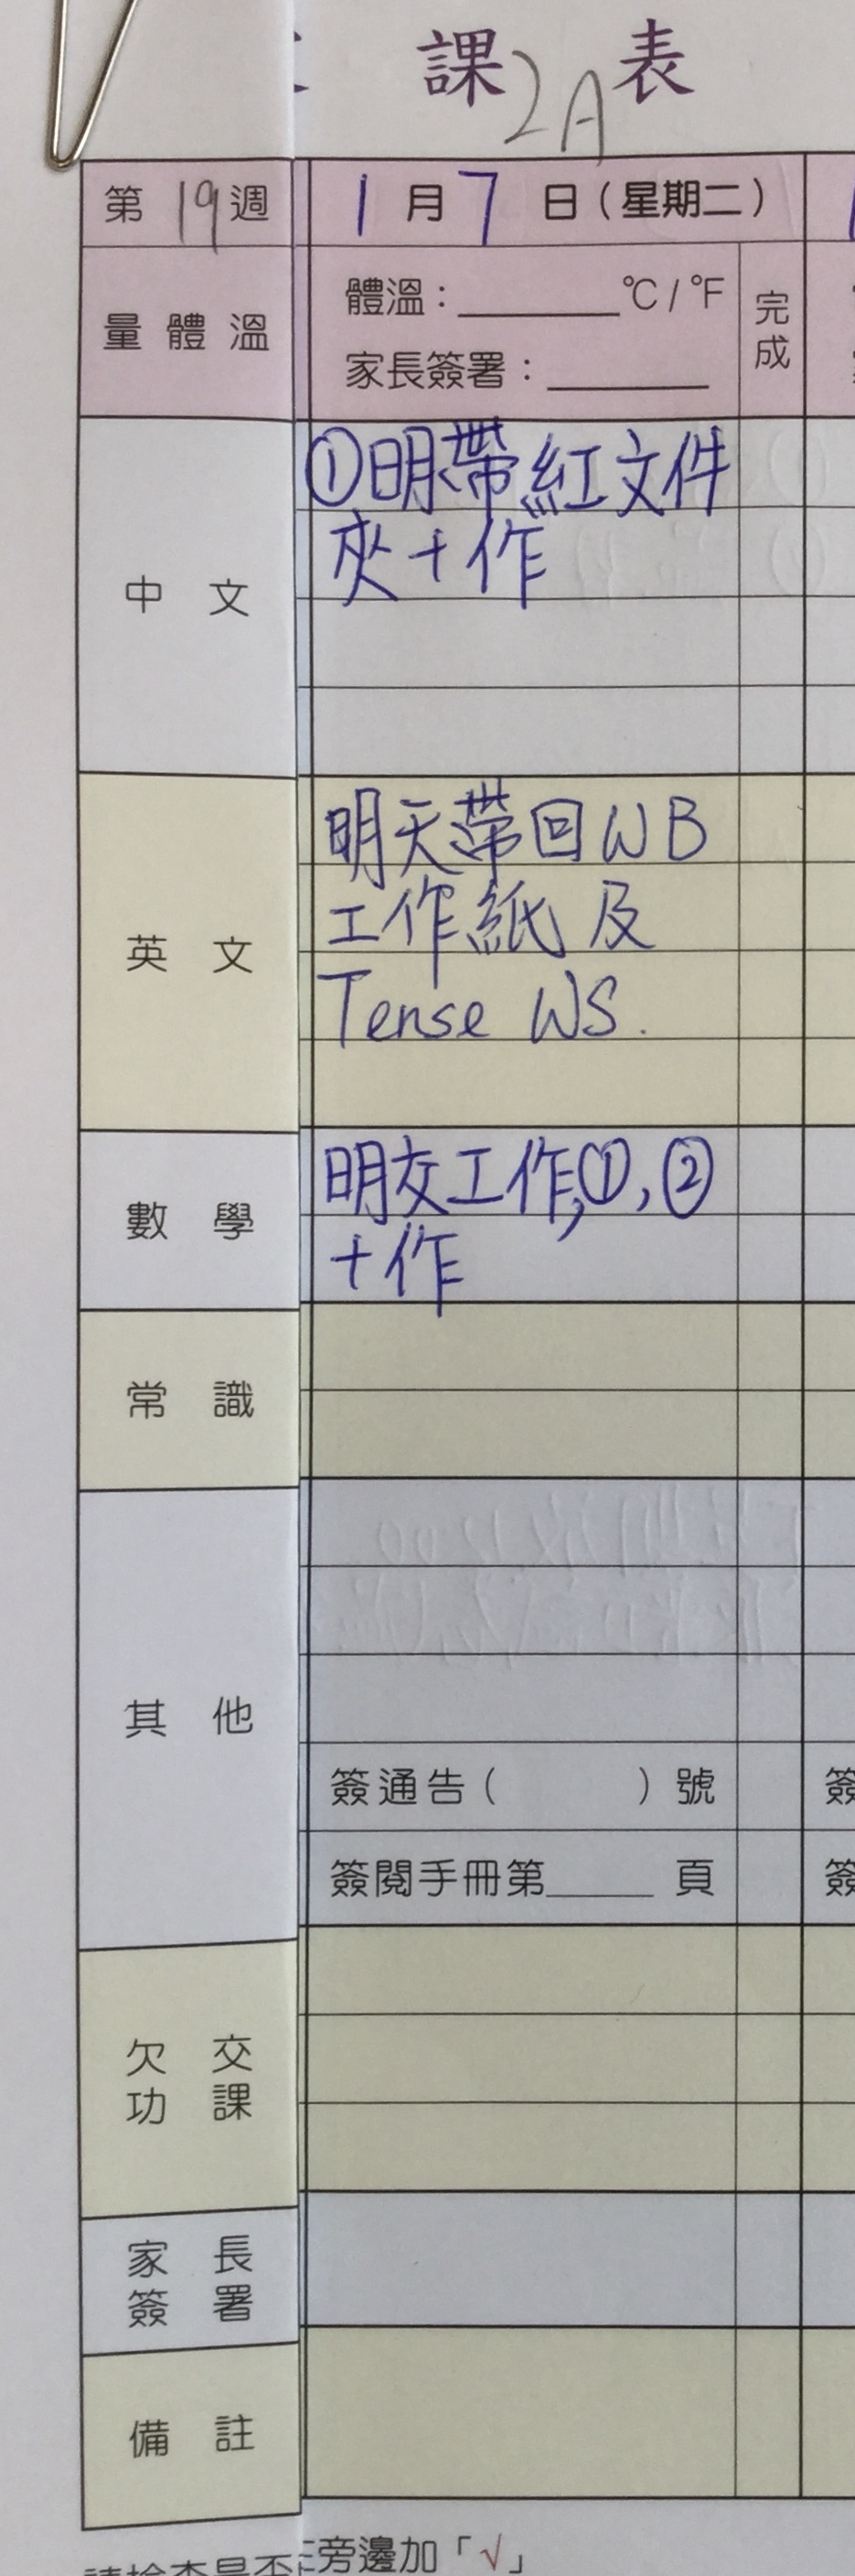 課 表
2A
第 19 週
1 月 7 日（星期二）
量體溫
體溫：______°C / °F
家長簽署：______
完成
中文
①明帶紅文件
夾＋作
英文
明天帶回WB
工作紙及
Tense WS.
數學
明交工作,①,②
＋作
常識
其他
簽通告（ ）號
簽閱手冊第____頁
簽
簽
欠交
功課
家長
簽署
備註
旁邊加「√」